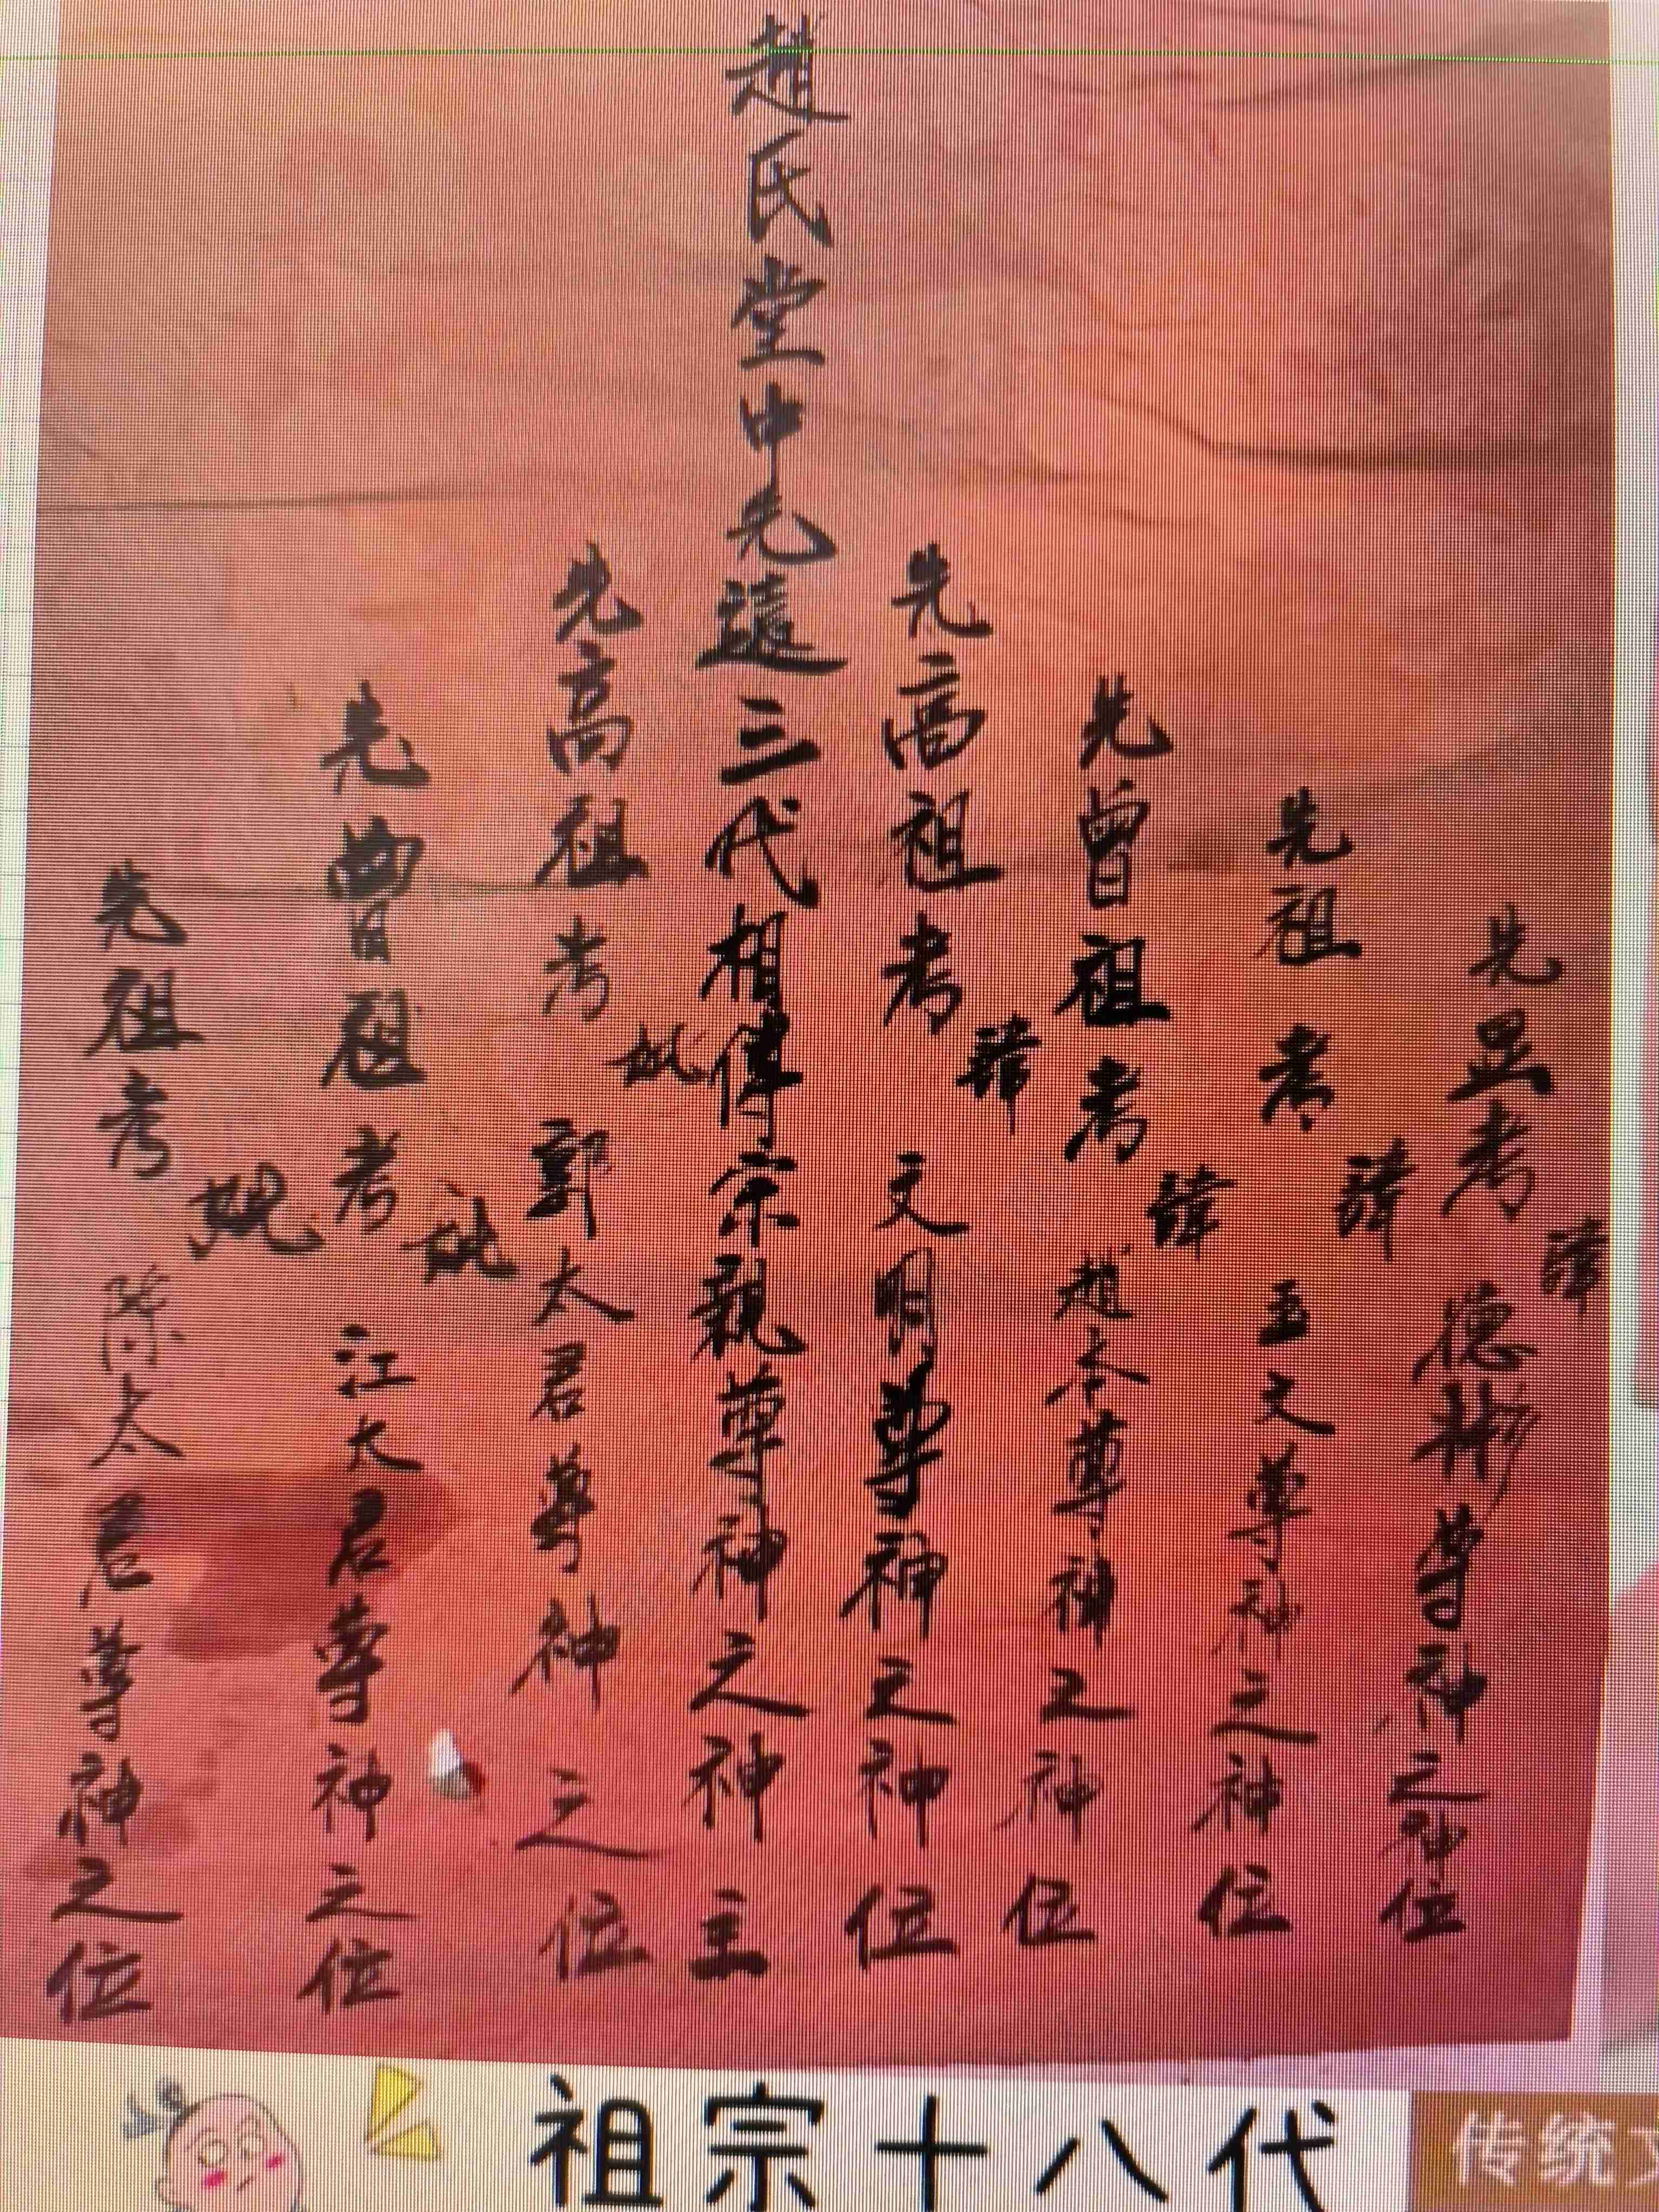 先显考 諱 德彬尊神之神位
先祖考 諱 玉文尊神之神位
先曾祖考 諱 趙令尊神之神位
先高祖考 諱 文明尊神之神位
趙氏堂中先遠三代相傳宗親尊神之神主
先高祖考 妣 郭太君尊神之位
先曾祖考 妣 江太君尊神之位
先祖考 妣 陈太君尊神之位
祖宗十八代
传统